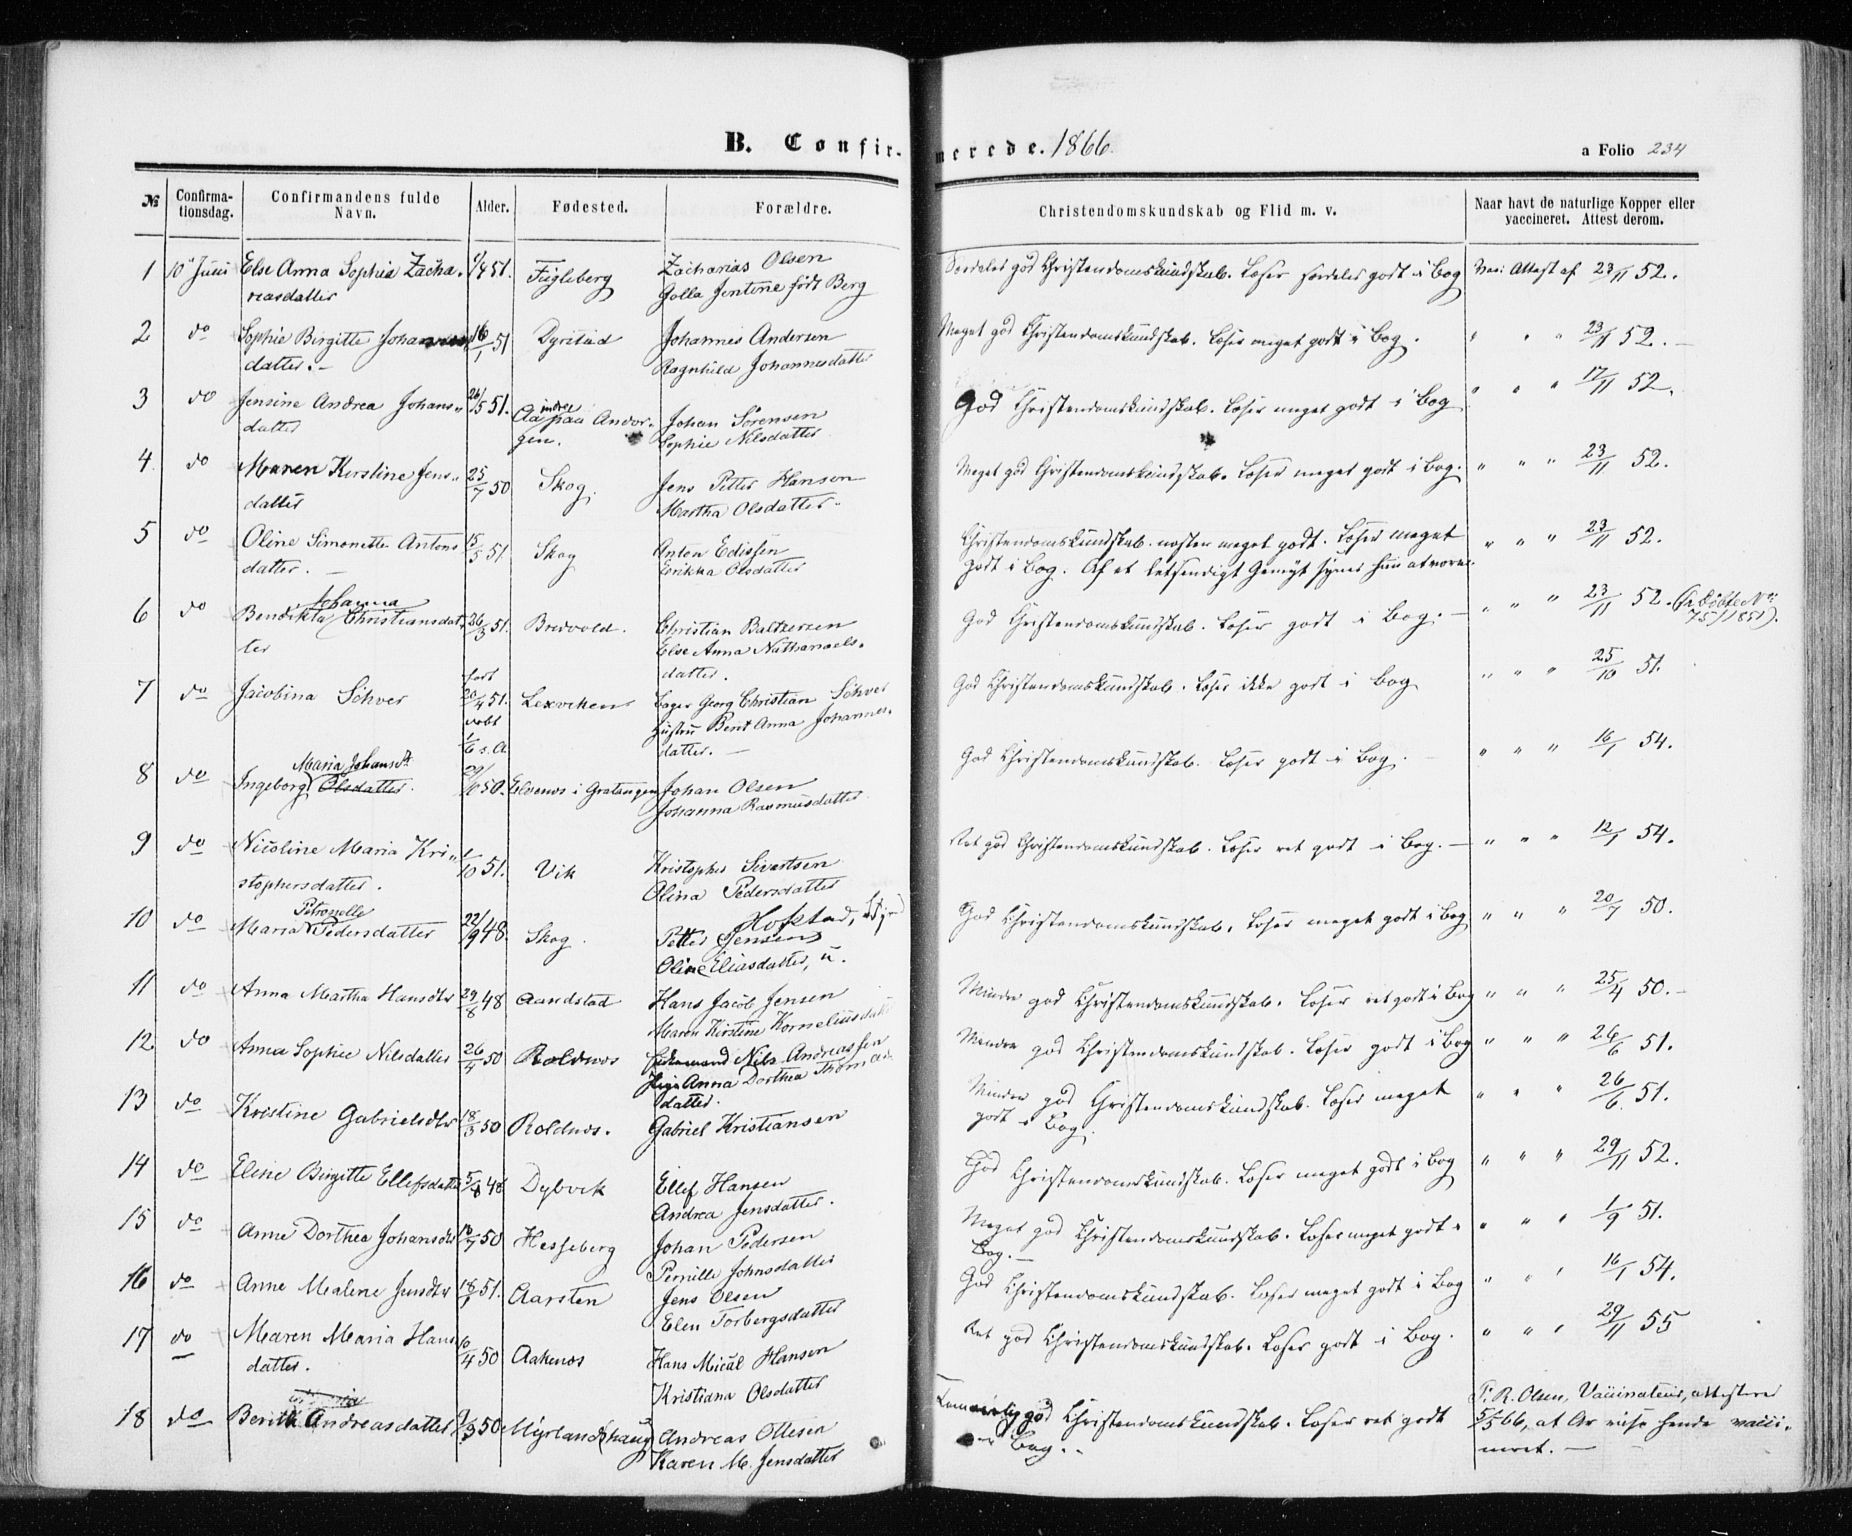 B. Confirmerede. 1866.
a Folio 234
№ Confirmationsdag. Confirmandens fulde Navn. Alder. Fødested. Forældre. Christendomskundskab og Flid m. v. Naar havt de naturlige Kopper eller vaccineret. Attest derom.
1 10 Juni Else Anna Sophia Zacha- 51. Fugleberg Zacharias Olsen Særdeles god Christendomskundskab. Læser særdeles godt i Bog Attest af 23/11 52.
reasdatter Jentine født Berg
2 do Sophie Birgitte 16/1 51 Dyrstad Johannes Andersen Meget god Christendomskundskab. Læser meget godt i Bog. " " " 23/11 52.
datter. Ragnhild Johannesdatter
3 do Jensine Andrea Johans- 26/5 51. Aa indre paa Andor- Johan Sørensen God Christendomskundskab. Læser meget godt i Bog " " " 17/11 52.
datter gen. Sophie Nilsdatter
4 do Maren Kirstine Jens- 25/7 50 Skog. Jens Petter Hanson Meget god Christendomskundskab. Læser meget godt i Bog. " " " 23/11 52.
datter Martha Olsdatter
5 do Oline Simonette Antons 15/5 51 Skog Anton Edissen Christendomskundskab næsten meget godt. Læser meget " " " 23/11 52.
datter. Erikka Olsdatter godt i Bog. Af et letsindigt Gemyt synes hun at være.
6 do Bendikta Johanna Christiansdat- 26/3 51. Bredvold. Christian Baltzersen God Christendomskundskab. Læser godt i Bog. " " " 23/11 52. (Døbte No
ter Else Anna Nathanaels- 75/1851).
datter.
7 do Jacobina Schver født 20/4 51. Lexviken Georg Christian Schver God Christendomskundskab. Læser ikke godt i Bog " " " 25/10 51.
døbt 1/6 s. A. Hustru Berit Anna Johannes-
datter.
8 do Ingeborg Maria Johansdt Olsdatter. 50. Elvenos i Gratangen Johan Olsen God Christendomskundskab. Læser godt i Bog. " " " 16/1 54.
Johanna Rasmusdatter
9 do Nicoline Maria Kri- 1/10 51. Vik Kristopher Sivertsen Ret god Christendomskundskab. Læser ret godt i Bog. " " " 12/1 54.
stophersdatter. Olina Pedersdatter
10 do Maria Petronelle Pedersdatter 22/9 48. Skog. Petter Jensen Hofstad, God Christendomskundskab. Læser meget godt i Bog " " " 20/7 50.
Oline Eliasdatter, u.
11 do Anna Martha Hansdtr 29/8 48 Aandstad Hans Jacob Jensen Mindre god Christendomskundskab. Læser ret godt i Bog " " " 25/4 50.
Maren Kirstine Korneliusdat
12 do Anna Sophie Nilsdatter 26/4 50 Roldnos Nils Andreassen Mindre god Christendomskundskab. Læser godt i Bog " " " 26/6 51.
Pige Anna Dorthea Thomas-
datter.
13 do Kristine Gabrielsdtr 18/3 50 Roldnos. Gabriel Kristiansen Mindre god Christendomskundskab. Læser meget " " " 26/6 51.
godt i Bog.
14 do Eline Birgitte Ellefsdatter 48 Dybvik Ellef Hansen God Christendomskundskab. Læser meget godt i Bog " " " 29/11 52.
Andrea Jensdatter.
15 do Anne Dorthea Johansdtr 50 Hesseberg Johan Pedersen Meget god Christendomskundskab. Læser meget godt i " " " 1/9 51.
Pernille Johnsdatter Bog.
16 do Anne Malene Jensdtr 51. Aarsten Jens Olsen God Christendomskundskab. Læser meget godt i Bog " " " 16/1 54.
Elen Torbergsdatter
17 do Maren Maria Hans 10/4 50 Aakenos Hans Mical Hansen Ret god Christendomskundskab. Læser godt i Bog. " " " 29/11 55
datter. Kristiana Olsdatter
18 do Berith Andreasdatter 50 Myrlandshaug Andreas Ottesen Temmelig god Christendomskundskab. Læser ret godt P. R. Olsen, Vaccinateur, attesterer
Karen M. Jensdatter i Bog. 5/5 66, at Ar vise hende vacci-
neret.